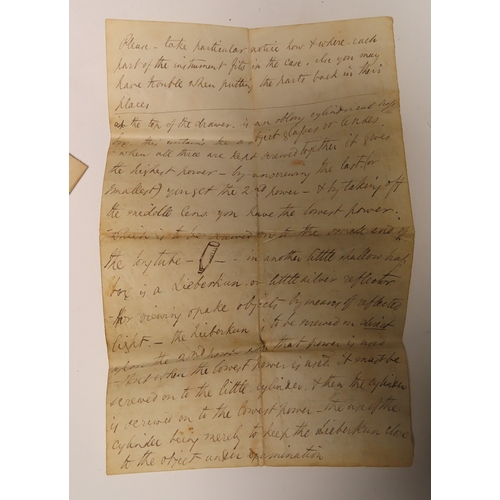 Please - take particular notice how & where each
part of the instrument fits in the case, else you may
have trouble when putting the parts back in their
places
in the top of the drawer is an oblong cylindrical
box this contains the 3 object glasses or lenses
- when all three are kept screwed together it gives
the highest power - by unscrewing the last (or
smallest) you get the 2nd power - & by taking off
the middle lens you have the lowest power.
which is to be screwed on to the small end of
the long tube - - - in another little shallow
box is a Lieberkun or little silver reflector
for viewing opake objects by means of reflected
light, - the Lieberkun is to be screwed on direct
upon the 2nd power when that power is used
- but when the lowest power is used it must be
screwed on to the little cylinder, & then the cylinder
is screwed on to the lowest power - the use of the
cylinder being merely to keep the Lieberkun close
to the object under examination